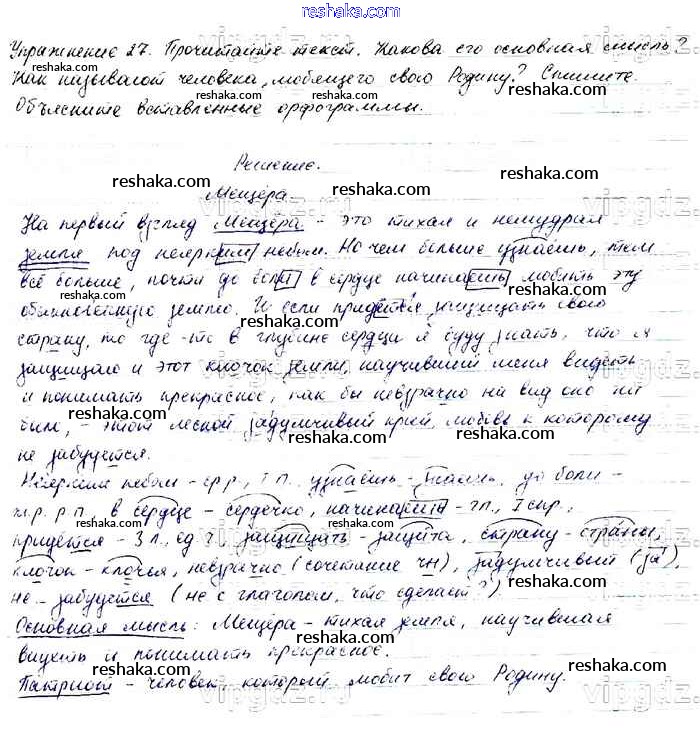 reshaka.com
Упражнение 27. Прочитайте текст. Какова его основная мысль?
Как называют человека, любящего свою Родину? Спишите.
Объясните вставленные орфограммы.
Решение.
Мещера.
На первый взгляд Мещера - это тихая и немудрая
земля под неярким небом. Но чем больше узнаёшь, тем
всё больше, почти до боли в сердце начинаешь любить эту
обыкновенную землю. И если придётся защищать свою
страну, то где-то в глубине сердца я буду знать, что я
защищаю и этот клочок земли, научивший меня видеть
и понимать прекрасное, как бы невзрачно на вид оно ни
было, - этот лесной задумчивый край, любовь к которому
не забудется.
Неярким небом - ср.р., т.п., узнаёшь - знать, до боли -
ж.р. р.п., в сердце - сердечко, начинаешь - гл., I спр.,
придётся - 3 л., ед.ч., защищать - защита, страну - страны,
клочок - клочья, невзрачно (сочетание чн), задумчивый (за),
не забудется (не с глаголом, что сделает?)
Основная мысль: Мещера - тихая земля, научившая
видеть и понимать прекрасное.
Патриот - человек который любит свою Родину.